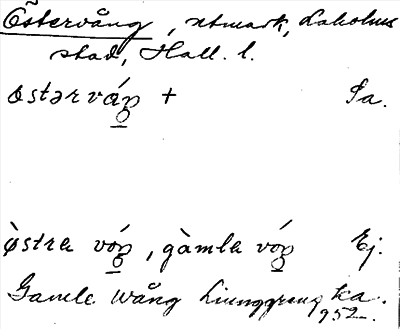 Östervång, utmark, Laholms
stad, Hall. l.
ostərváŋ + Sa.
òstra vóŋ, gàmla vóŋ Ej.
Gamle Wång Liunggreng ka.
952.